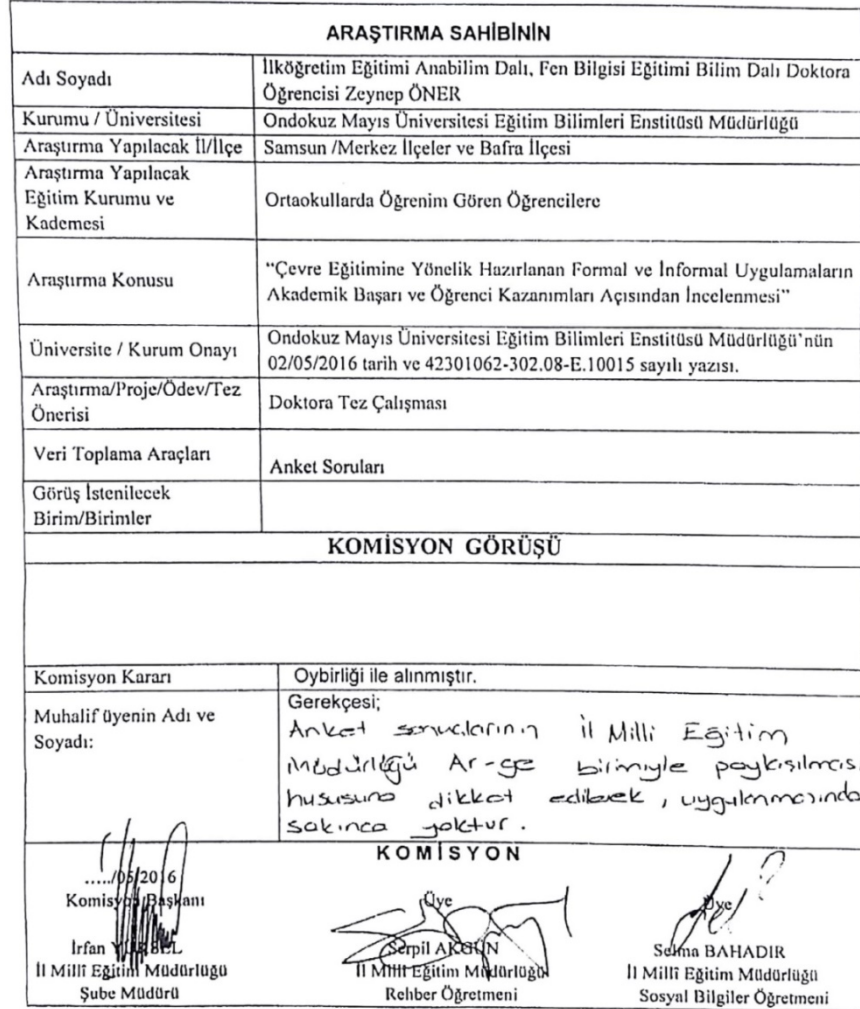 ARAŞTIRMA SAHİBİNİN
Adı Soyadı
İlköğretim Eğitimi Anabilim Dalı, Fen Bilgisi Eğitimi Bilim Dalı Doktora
Öğrencisi Zeynep ÖNER
Kurumu / Üniversitesi
Ondokuz Mayıs Üniversitesi Eğitim Bilimleri Enstitüsü Müdürlüğü
Araştırma Yapılacak İl/İlçe
Samsun /Merkez İlçeler ve Bafra İlçesi
Araştırma Yapılacak
Eğitim Kurumu ve
Kademesi
Ortaokullarda Öğrenim Gören Öğrencilere
Araştırma Konusu
“Çevre Eğitimine Yönelik Hazırlanan Formal ve İnformal Uygulamaların
Akademik Başarı ve Öğrenci Kazanımları Açısından İncelenmesi”
Üniversite / Kurum Onayı
Ondokuz Mayıs Üniversitesi Eğitim Bilimleri Enstitüsü Müdürlüğü’nün
02/05/2016 tarih ve 42301062-302.08-E.10015 sayılı yazısı.
Araştırma/Proje/Ödev/Tez
Önerisi
Doktora Tez Çalışması
Veri Toplama Araçları
Anket Soruları
Görüş İstenilecek
Birim/Birimler
KOMİSYON GÖRÜŞÜ
Komisyon Kararı
Oybirliği ile alınmıştır.
Muhalif üyenin Adı ve
Soyadı:
Gerekçesi;
Anket sonuçlarının İl Milli Eğitim
Müdürlüğü Ar-ge birimiyle paylaşılması
hususuna dikkat edilerek, uygulanmasında
sakınca yoktur.
KOMİSYON
...../05/2016
Komisyon Başkanı
İrfan
İl Milli Eğitim Müdürlüğü
Şube Müdürü
Üye
Serpil AKGÜN
İl Milli Eğitim Müdürlüğü
Rehber Öğretmeni
Üye
Selma BAHADIR
İl Millî Eğitim Müdürlüğü
Sosyal Bilgiler Öğretmeni